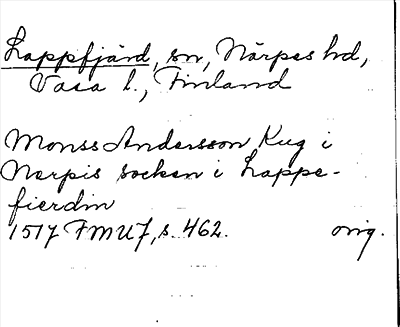 Lappfjärd, sn, Närpes hd,
Vasa l., Finland
Monss Andersson Kug i
Nerpis socken i Lappe-
fierdin
1517 FMU7, s. 462. orig.